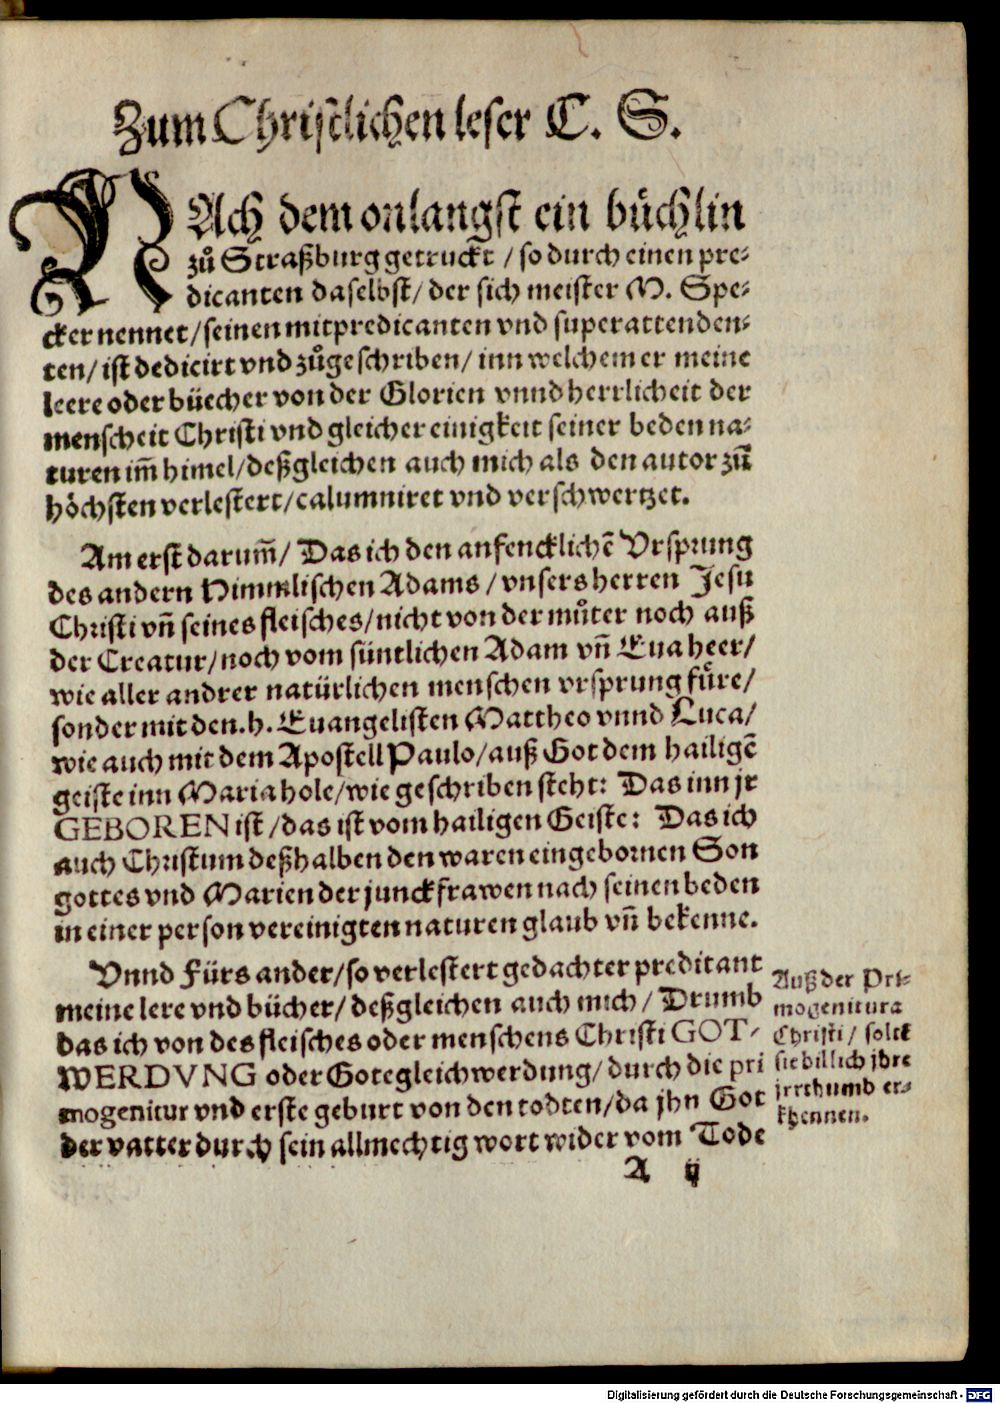 Zum Christlichen leser C. S.
NAch dem onlangst ein büchlin
zů Straßburg getruckt / so durch einen pre⸗
dicanten daselbst / der sich meister M. Spe⸗
cker nennet / seinen mitpredicanten vnd superattenden⸗
ten / ist dedicirt vnd zůgeschriben / inn welchem er meine
leere oder büecher von der Glorien vnnd herrlicheit der
menscheit Christi vnd gleicher einigkeit seiner beden na⸗
turen im̃ himel / deßgleichen auch mich als den autor zũ
höchsten verlestert / calumniret vnd verschwertzet.
Am erst darum̃ / Das ich den anfencklichẽ Vrsprung
des andern Himmlischen Adams / vnsers herren Jesu
Christi vñ seines fleisches / nicht von der můter noch auß
der Creatur / noch vom süntlichen Adam vñ Eua heer /
wie aller andrer natürlichen menschen vrsprung fůre /
sonder mit den .h. Euangelisten Mattheo vnnd Luca /
wie auch mit dem Apostell Paulo / auß Got dem hailigẽ
geiste inn Maria hole / wie geschriben steht: Das inn jr
GEBOREN ist / das ist vom hailigen Geiste: Das ich
auch Christum deßhalben den waren eingebornen Son
gottes vnd Marien der junckfrawen nach seinen beden
in einer person vereinigten naturen glaub vñ bekenne.
Vnnd Fürs ander / so verlestert gedachter predicant
meine lere vnd bücher / deßgleichen auch mich / Drumb
das ich von des fleisches oder menschens Christi GOT⸗
WERDVNG oder Gotegleichwerdung / durch die pri
mogenitur vnd erste geburt von den todten / da jhn Got
der vatter durch sein allmechtig wort wider vom Tode
Auß der Pri⸗
mogenitura
Christi / solt
sie billich jhre
jrrthumb er⸗
khennen.
A ij
Digitalisierung gefördert durch die Deutsche Forschungsgemeinschaft - DFG